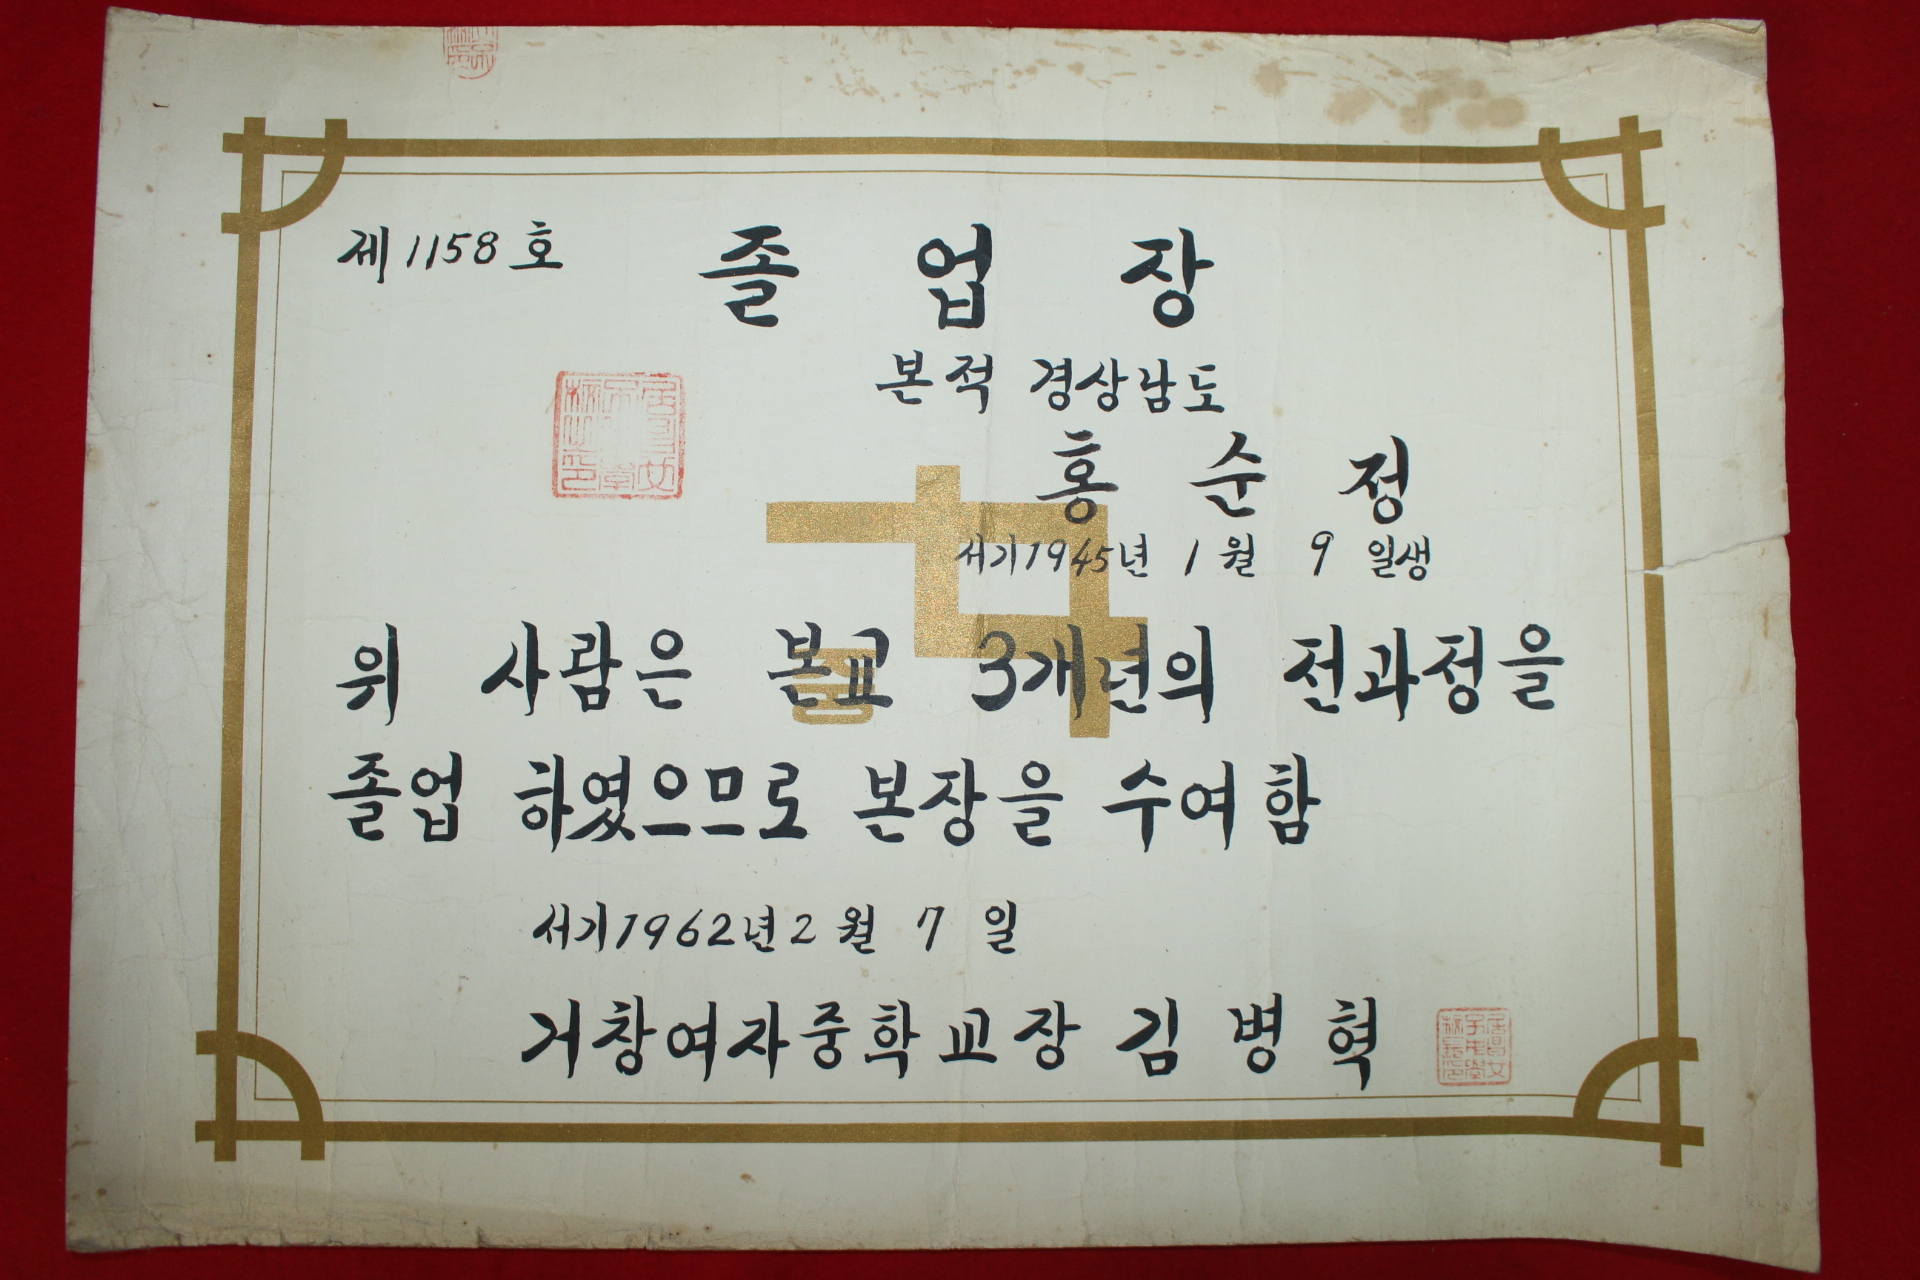 제 1158 호
졸 업 장
본적 경상남도
홍 순 정
서기1945년 1월 9일생
위 사람은 본교 3개년의 전과정을
졸업 하였으므로 본장을 수여함
서기1962년 2월 7일
거창여자중학교장 김병혁